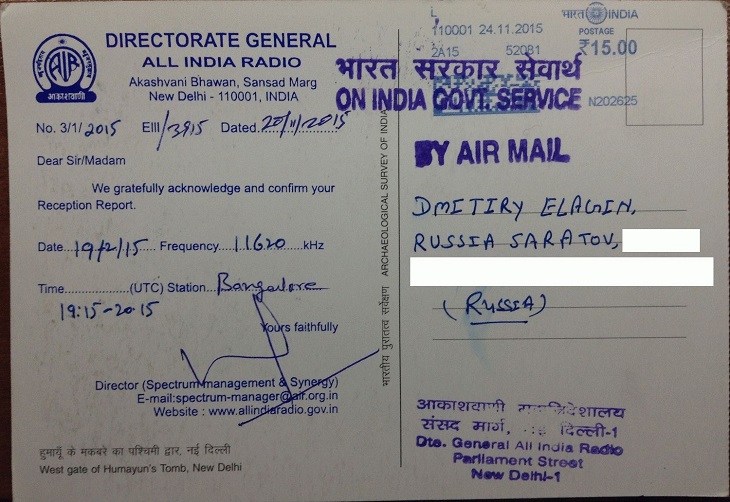 DIRECTORATE GENERAL
ALL INDIA RADIO
Akashvani Bhawan, Sansad Marg
New Delhi - 110001, INDIA
AIR
आकाशवाणी
No. 3/1/2015 EIII/3915 Dated. 20/11/2015
Dear Sir/Madam
We gratefully acknowledge and confirm your
Reception Report.
Date....19/2/15 Frequency....11620....kHz
Time..................(UTC) Station...Bangalore
19:15-20:15
Yours faithfully
Director (Spectrum management & Synergy)
E-mail:spectrum-manager@air.org.in
Website : www.allindiaradio.gov.in
हुमायूँ के मकबरे का पश्चिमी द्वार, नई दिल्ली
West gate of Humayun's Tomb, New Delhi
भारतीय पुरातत्व सर्वेक्षण ARCHAEOLOGICAL SURVEY OF INDIA
L
110001 24.11.2015
2A15 52081
भारत INDIA
POSTAGE
₹15.00
N202625
भारत सरकार सेवार्थ
ON INDIA GOVT. SERVICE
BY AIR MAIL
DMITIRY ELAGIN,
RUSSIA SARATOV,
(RUSSIA)
आकाशवाणी
संसद मार्ग, नई दिल्ली-1
Dte. General All India Radio
Parliament Street
New Delhi-1